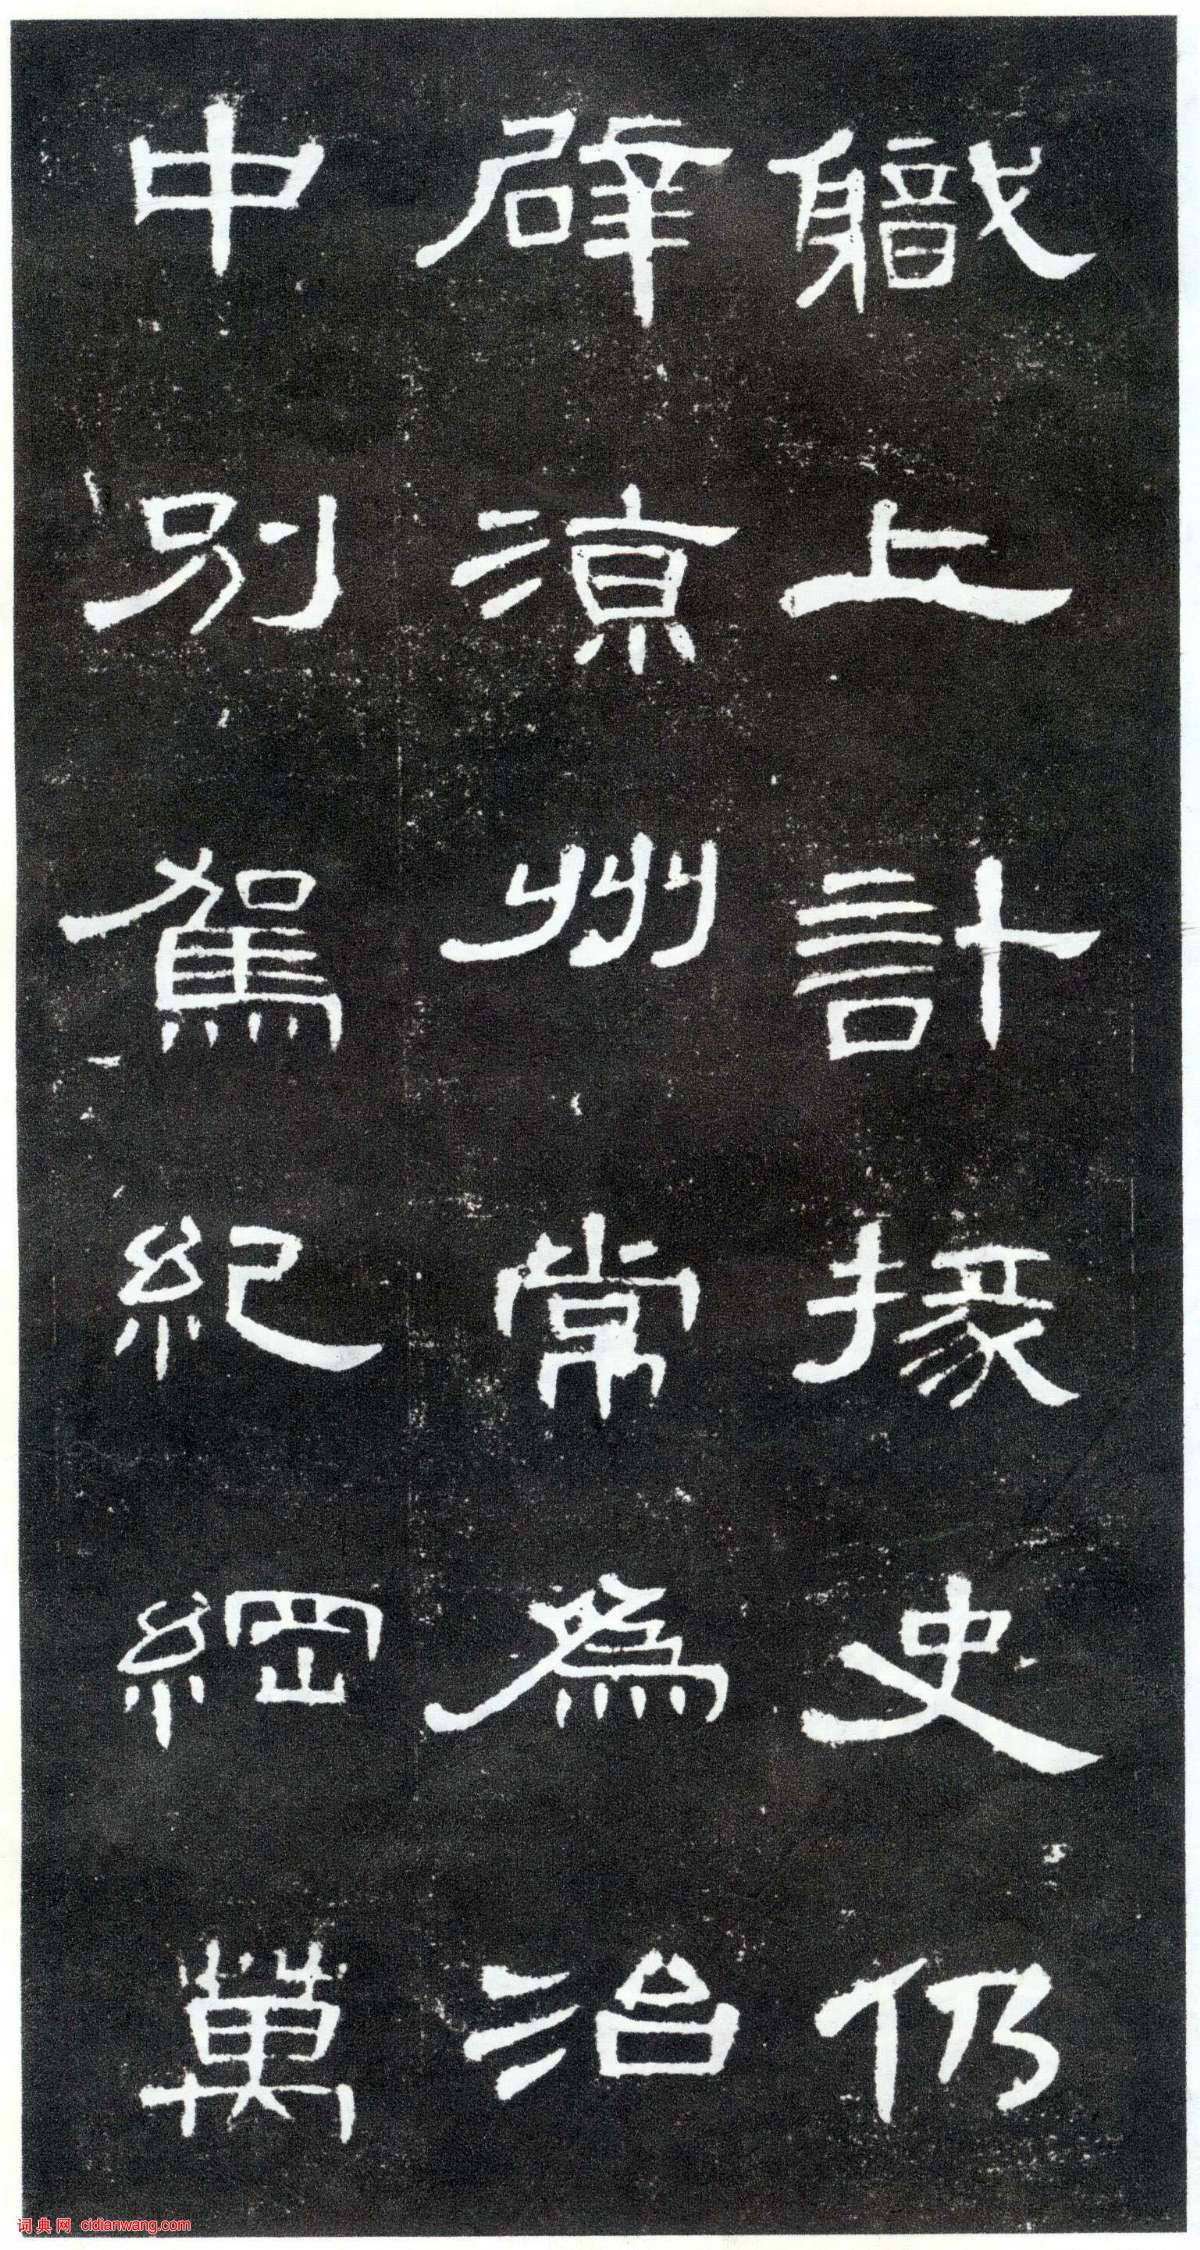 職上計掾史仍
辟涼州常為治
中別駕紀綱萬
词典网 cidianwang.com